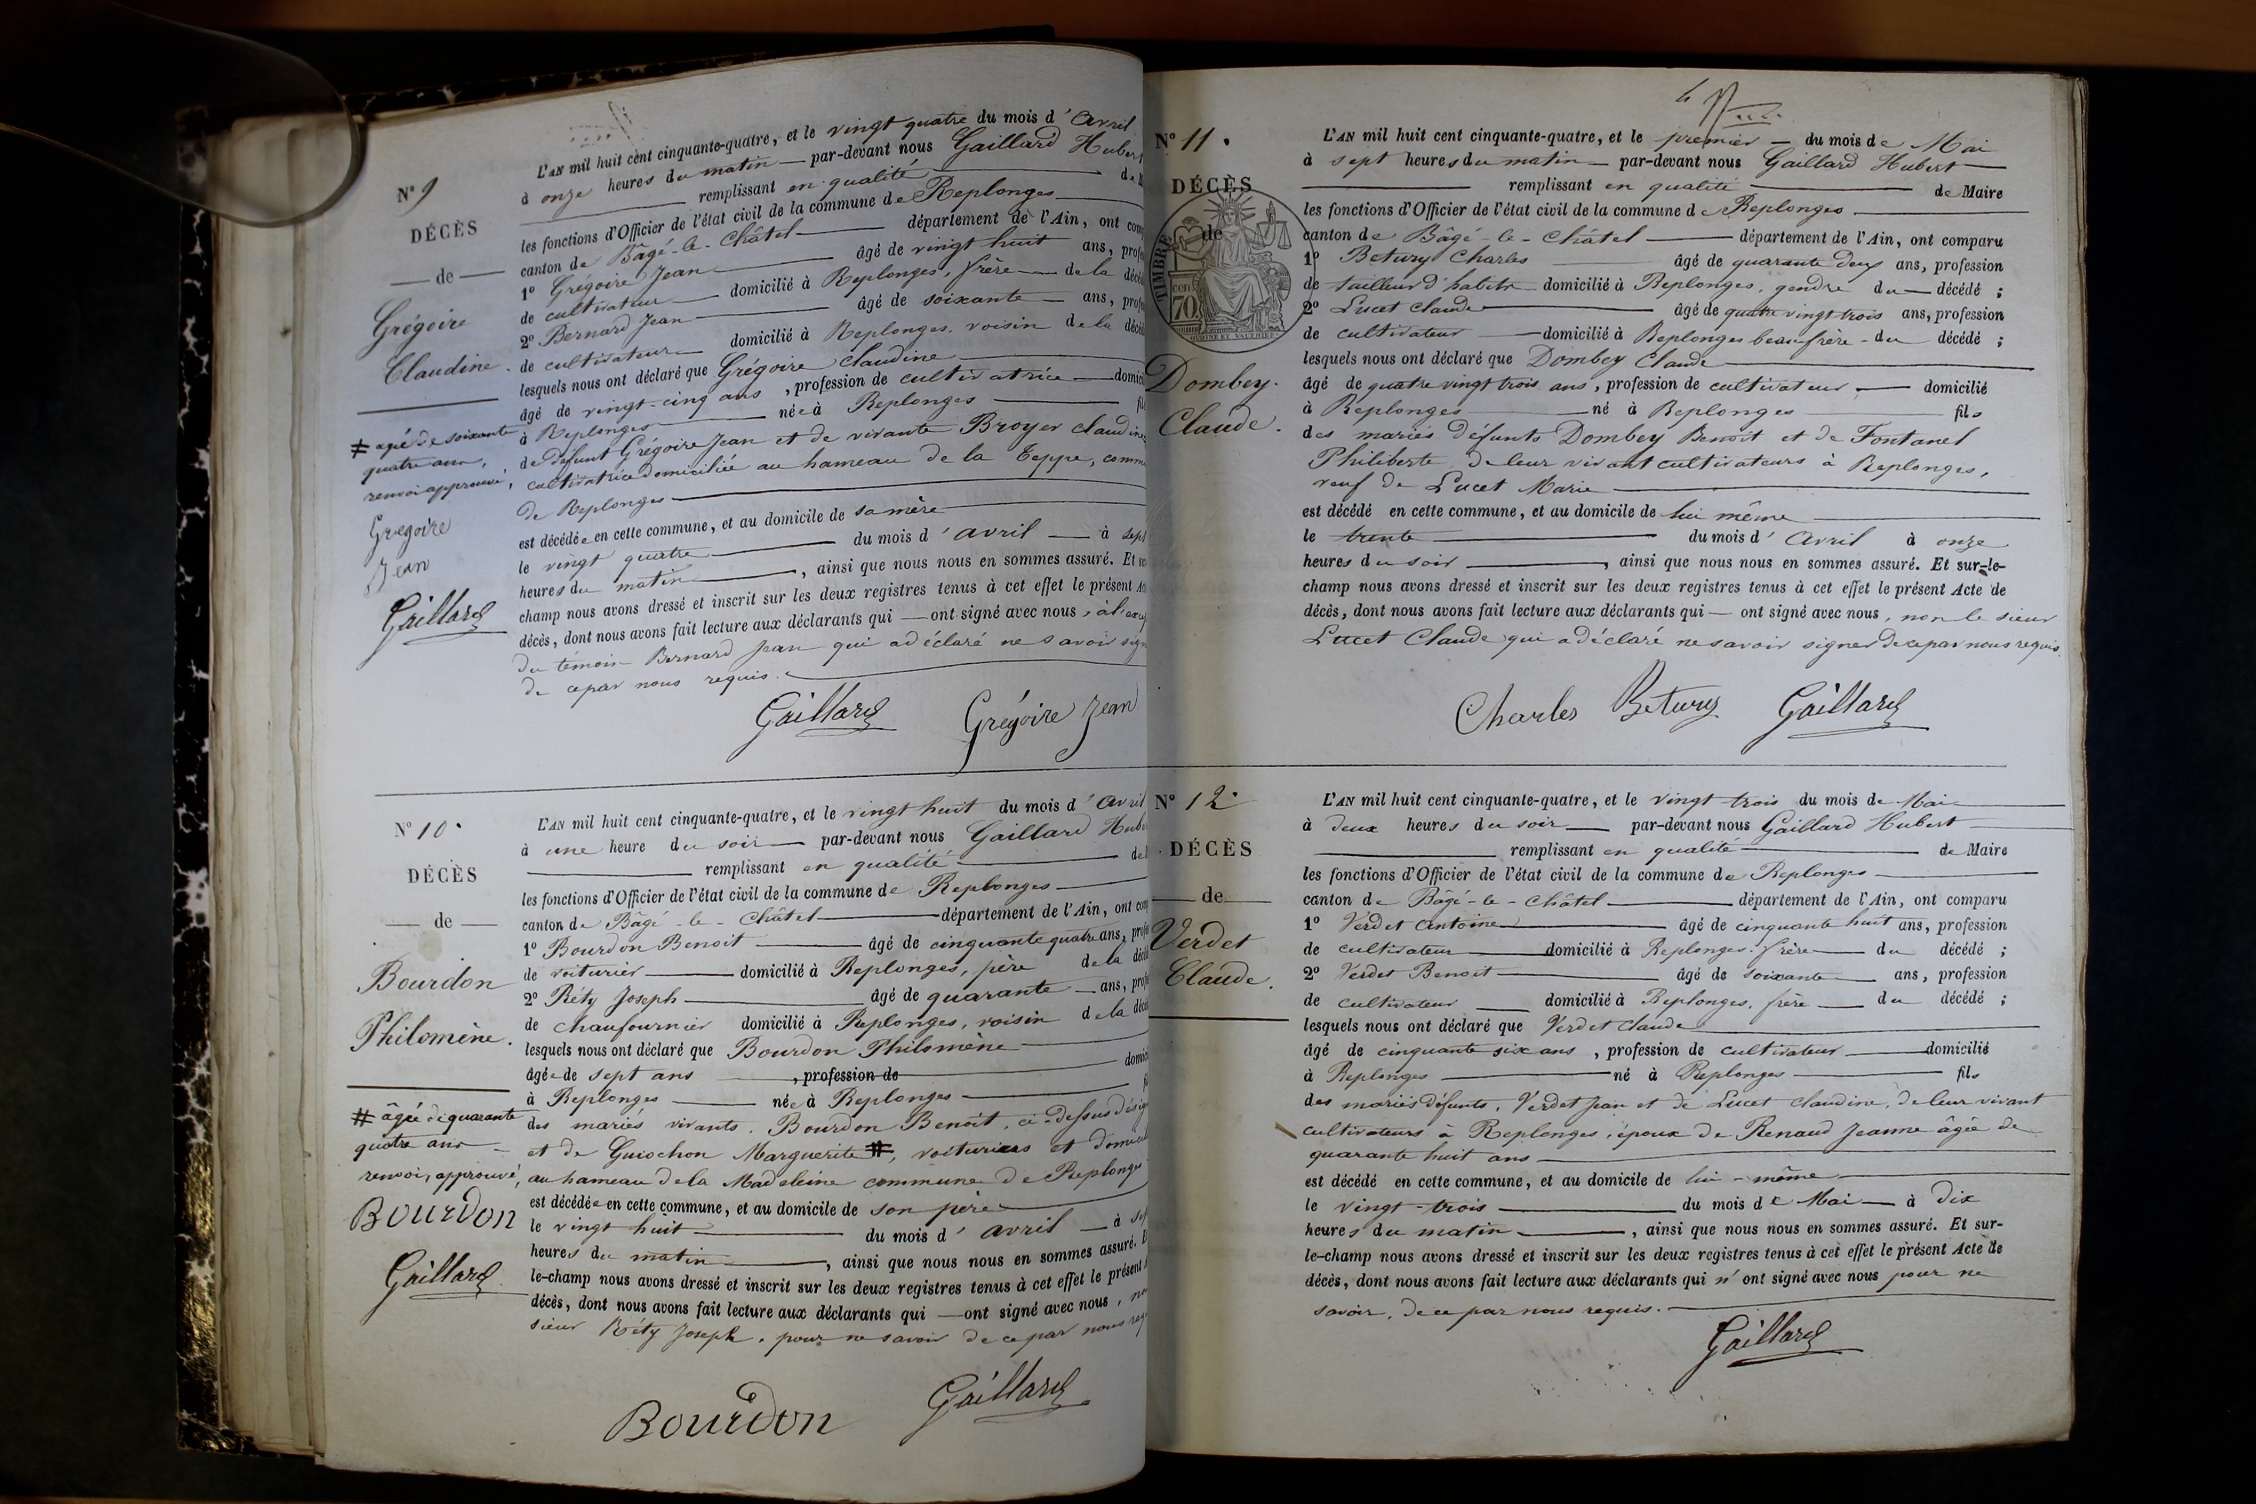 N° 9
DÉCÈS
de
Grégoire
Claudine.
# agée de soixante
quatre ans,
renvoi approuvé,
Gregoire
Jean
Gaillard
L'AN mil huit cent cinquante-quatre, et le vingt quatre du mois d'Avril
à onze heures du matin par-devant nous Gaillard Hubert
remplissant en qualité de
les fonctions d'Officier de l'état civil de la commune de Replonges
canton de Bâgé-le-Châtel département de l'Ain, ont
1° Grégoire Jean âgé de vingt huit ans,
de cultivateur domicilié à Replonges, frère de la
2° Bernard Jean âgé de soixante ans,
de cultivateur domicilié à Replonges, voisin de la
lesquels nous ont déclaré que Grégoire Claudine
âgé de vingt-cinq ans, profession de cultivatrice
à Replonges née à Replonges
de défunt Grégoire Jean et de vivante Broyer Claudine
cultivatrice domiciliée au hameau de la Teppe,
de Replonges
est décédée en cette commune, et au domicile de sa mère
le vingt quatre du mois d'avril à sept
heures du matin, ainsi que nous nous en sommes assuré. Et
champ nous avons dressé et inscrit sur les deux registres tenus à cet effet le présent
décès, dont nous avons fait lecture aux déclarants qui ont signé avec nous,
du témoin Bernard Jean qui a déclaré ne savoir
de ce par nous requis.
Gaillard Grégoire Jean
N° 10.
DÉCÈS
de
Bourdon
Philomène.
# âgée de quarante
quatre ans
renvoi, approuvé,
Bourdon
Gaillard
L'AN mil huit cent cinquante-quatre, et le vingt huit du mois d'Avril
à une heure du soir par-devant nous Gaillard
remplissant en qualité
les fonctions d'Officier de l'état civil de la commune de Replonges
canton de Bâgé-le-Châtel département de l'Ain, ont
1° Bourdon Benoit âgé de cinquante quatre ans,
de voiturier domicilié à Replonges, père de la
2° Réty Joseph âgé de quarante ans,
de chaufournier domicilié à Replonges, voisin de la
lesquels nous ont déclaré que Bourdon Philomène
âgée de sept ans, profession de
à Replonges née à Replonges
des mariés vivants. Bourdon Benoit, ci-dessus
et de Guiochon Marguerite #, voituriers et
au hameau de la Madeleine commune de Replonges
est décédée en cette commune, et au domicile de son père
le vingt huit du mois d'avril à
heures du matin, ainsi que nous nous en sommes assuré.
le-champ nous avons dressé et inscrit sur les deux registres tenus à cet effet le présent
décès, dont nous avons fait lecture aux déclarants qui ont signé avec nous,
sieur Réty Joseph, pour ne savoir de ce par nous
Bourdon Gaillard
4
N° 11.
DÉCÈS
de
TIMBRE
70
Dombey.
Claude.
L'AN mil huit cent cinquante-quatre, et le premier du mois de Mai
à sept heures du matin par-devant nous Gaillard Hubert
remplissant en qualité de Maire
les fonctions d'Officier de l'état civil de la commune de Replonges
canton de Bâgé-le-Châtel département de l'Ain, ont comparu
1° Betury Charles âgé de quarante deux ans, profession
de tailleur d'habits domicilié à Replonges, gendre du décédé ;
2° Lucet Claude âgé de quatre vingt trois ans, profession
de cultivateur domicilié à Replonges beau-frère du décédé ;
lesquels nous ont déclaré que Dombey Claude
âgé de quatre vingt trois ans, profession de cultivateur domicilié
à Replonges né à Replonges fils
des mariés défunts Dombey Benoit et de Fontanel
Philiberte, de leur vivant cultivateurs à Replonges,
veuf de Lucet Marie
est décédé en cette commune, et au domicile de lui même
le trente du mois d'Avril à onze
heures du soir, ainsi que nous nous en sommes assuré. Et sur-le-
champ nous avons dressé et inscrit sur les deux registres tenus à cet effet le présent Acte de
décès, dont nous avons fait lecture aux déclarants qui ont signé avec nous, non le sieur
Lucet Claude qui a déclaré ne savoir signer de ce par nous requis.
Charles Betury Gaillard
N° 12.
DÉCÈS
de
Verdet
Claude.
L'AN mil huit cent cinquante-quatre, et le vingt-trois du mois de Mai
à deux heures du soir par-devant nous Gaillard Hubert
remplissant en qualité de Maire
les fonctions d'Officier de l'état civil de la commune de Replonges
canton de Bâgé-le-Châtel département de l'Ain, ont comparu
1° Verdet Antoine âgé de cinquante huit ans, profession
de cultivateur domicilié à Replonges, frère du décédé ;
2° Verdet Benoit âgé de soixante ans, profession
de cultivateur domicilié à Replonges, frère du décédé ;
lesquels nous ont déclaré que Verdet Claude
âgé de cinquante six ans, profession de cultivateur domicilié
à Replonges né à Replonges fils
des mariés défunts, Verdet Jean et de Lucet Claudine, de leur vivant
cultivateurs à Replonges, époux de Renaud Jeanne âgée de
quarante huit ans
est décédé en cette commune, et au domicile de lui-même
le vingt-trois du mois de Mai à dix
heures du matin, ainsi que nous nous en sommes assuré. Et sur-
le-champ nous avons dressé et inscrit sur les deux registres tenus à cet effet le présent Acte de
décès, dont nous avons fait lecture aux déclarants qui n'ont signé avec nous pour ne
savoir, de ce par nous requis.
Gaillard